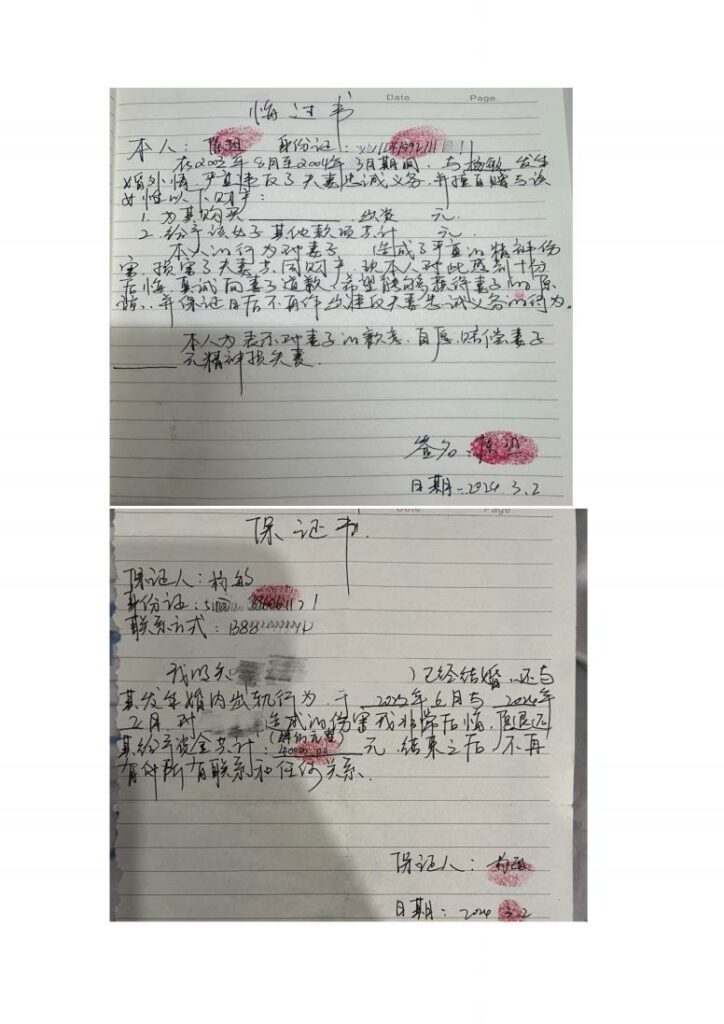 Date. Page.
悔过书
本人： 身份证：
在2023年8月至2024年3月期间，与杨敏发生
婚外情，严重违反了夫妻忠诚义务，并擅自赠与该
女性以下财产：
1. 为其购买 出资 元.
2. 给予该女子其他款项共计 元.
本人的行为对妻子 造成了严重的精神伤
害，损害了夫妻共同财产，现本人对此感到十分
后悔，真诚向妻子道歉，希望能够获得妻子的原
谅，并保证日后不再作出违反夫妻忠诚义务的行为。
本人为表示对妻子的歉意，自愿赔偿妻子
元精神损失费.
签名：
日期：2024.3.2
Date Page
保证书.
保证人：杨敏
身份证：
联系方式：
我明知 ）已经结婚，还与
其发生婚内出轨行为，于 2023年6月与 2024年
2月，对 造成的伤害我非常后悔，退还
其给予资金共计： 40000 元，结束之后，不再
有任何关系.
保证人：杨敏
日期：2024 3.2